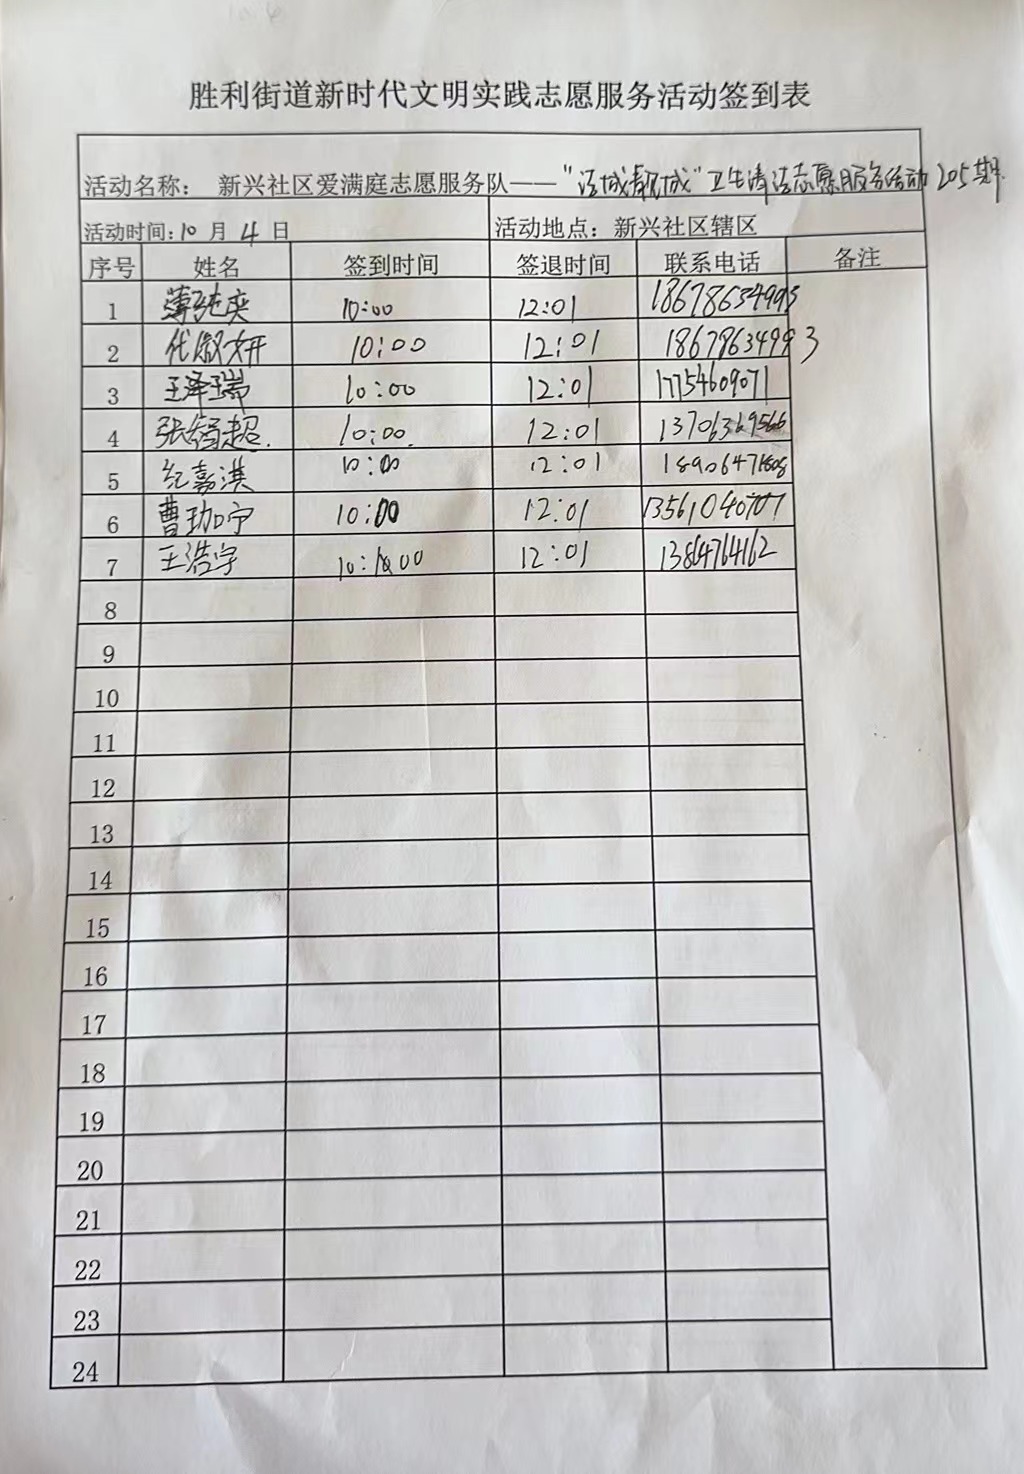 胜利街道新时代文明实践志愿服务活动签到表
活动名称： 新兴社区爱满庭志愿服务队——“洁城靓城”卫生清洁志愿服务活动205期
活动时间:10 月 4 日 活动地点：新兴社区辖区
序号 姓名 签到时间 签退时间 联系电话 备注
1 薄纯奕 10:00 12:01 18678634995
2 代淑妍 10:00 12:01 18678634993
3 王泽瑞 10:00 12:01 17754609071
4 张超 10:00 12:01 13706369566
5 纪嘉淇 10:00 12:01 18906471808
6 曹珈宁 10:00 12:01 13561040707
7 王浩宇 10:00 12:01 13864764162
8
9
10
11
12
13
14
15
16
17
18
19
20
21
22
23
24